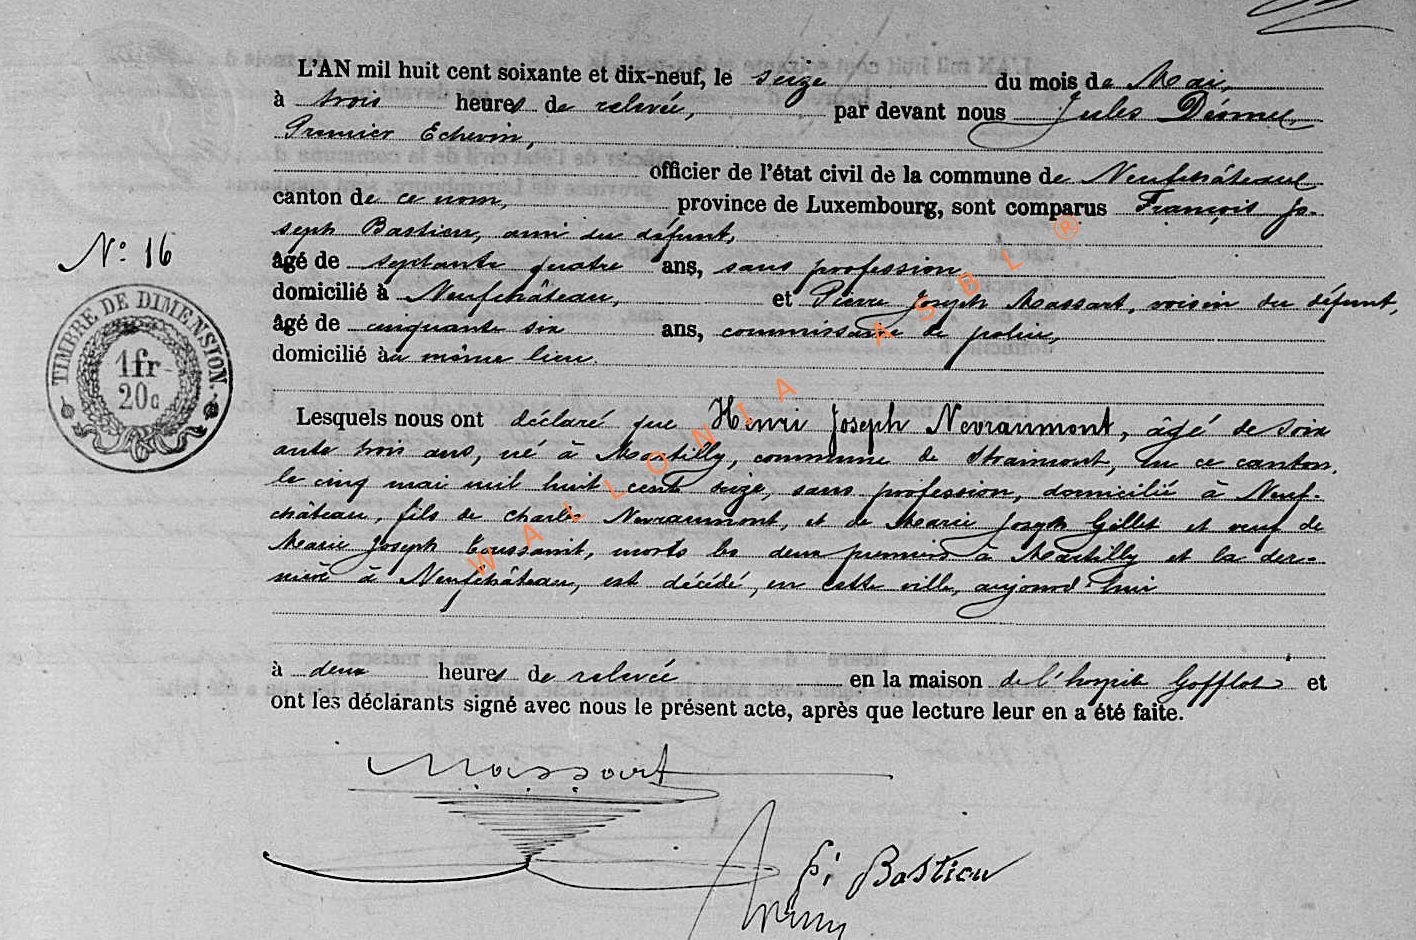 L'AN mil huit cent soixante et dix-neuf, le seize du mois de Mai,
à trois heures de relevée, par devant nous Jules
Premier Echevin,
officier de l'état civil de la commune de Neufchâteau
canton de ce nom, province de Luxembourg, sont comparus François Jo-
seph Bastien, ami du défunt,
N° 16
âgé de septante quatre ans, sans profession
domicilié à Neufchâteau, et Pierre Joseph Massart, voisin du défunt,
âgé de cinquante six ans, commissaire de police,
domicilié au même lieu.
TIMBRE DE DIMENSION.
1fr
20c
Lesquels nous ont déclaré que Henri Joseph Nevraumont, âgé de soix
ante trois ans, né à Martilly, commune de Straimont, en ce canton,
le cinq mai mil huit cent seize, sans profession, domicilié à Neuf-
château, fils de Charles Nevraumont, et de Marie Joseph Gillet et veuf de
Marie Joseph Toussaint, morts les deux premiers à Martilly et la der-
nière à Neufchâteau, est décédé, en cette ville, aujourd'hui
à deux heures de relevée en la maison de l'hospice Gofflot et
ont les déclarants signé avec nous le présent acte, après que lecture leur en a été faite.
Massart
Bastien
WALLONIA ASBL ®